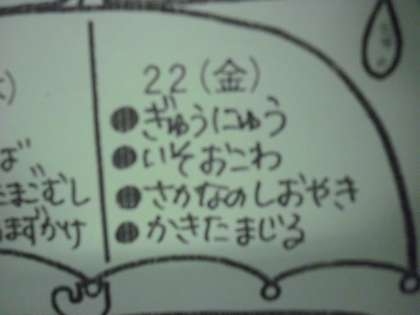 22(金)
●ぎゅうにゅう
●いそおこわ
●さかなのしおやき
●かきたまじる
ば
たまごむし
まずかけ